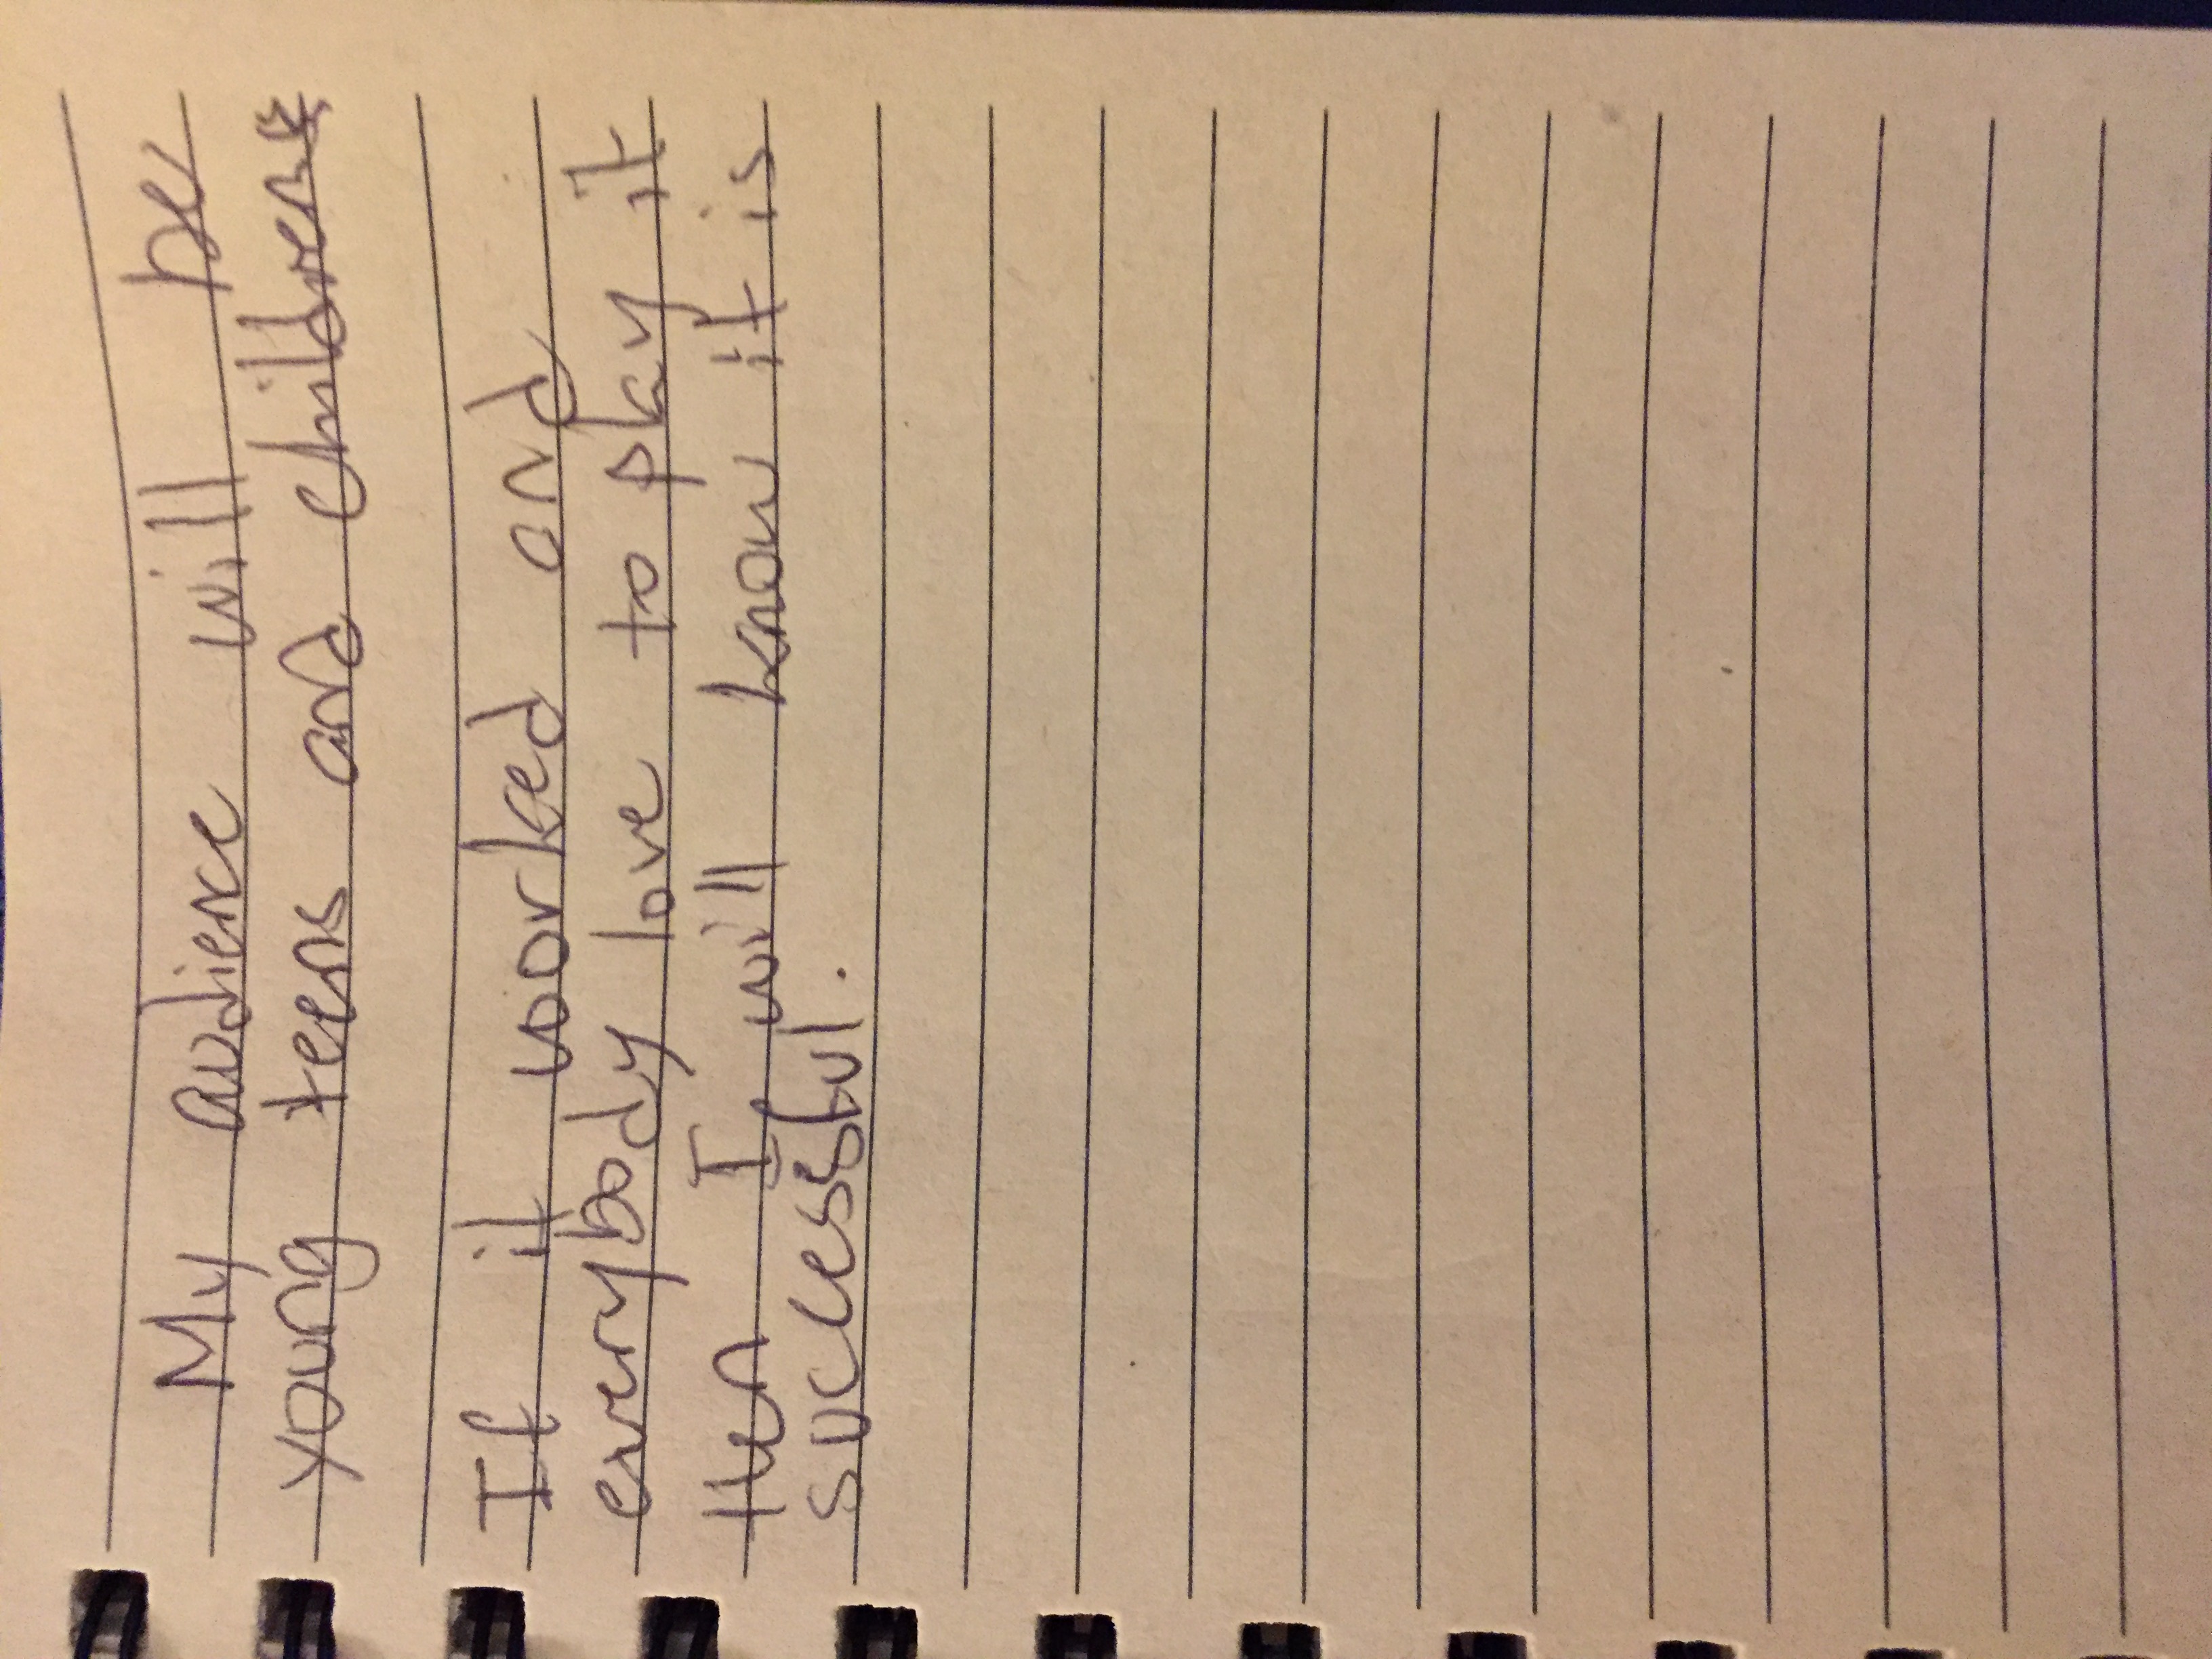 My audience will be
young teens and children
If it worked and
everybody love to play it
then I will know it is
successful.